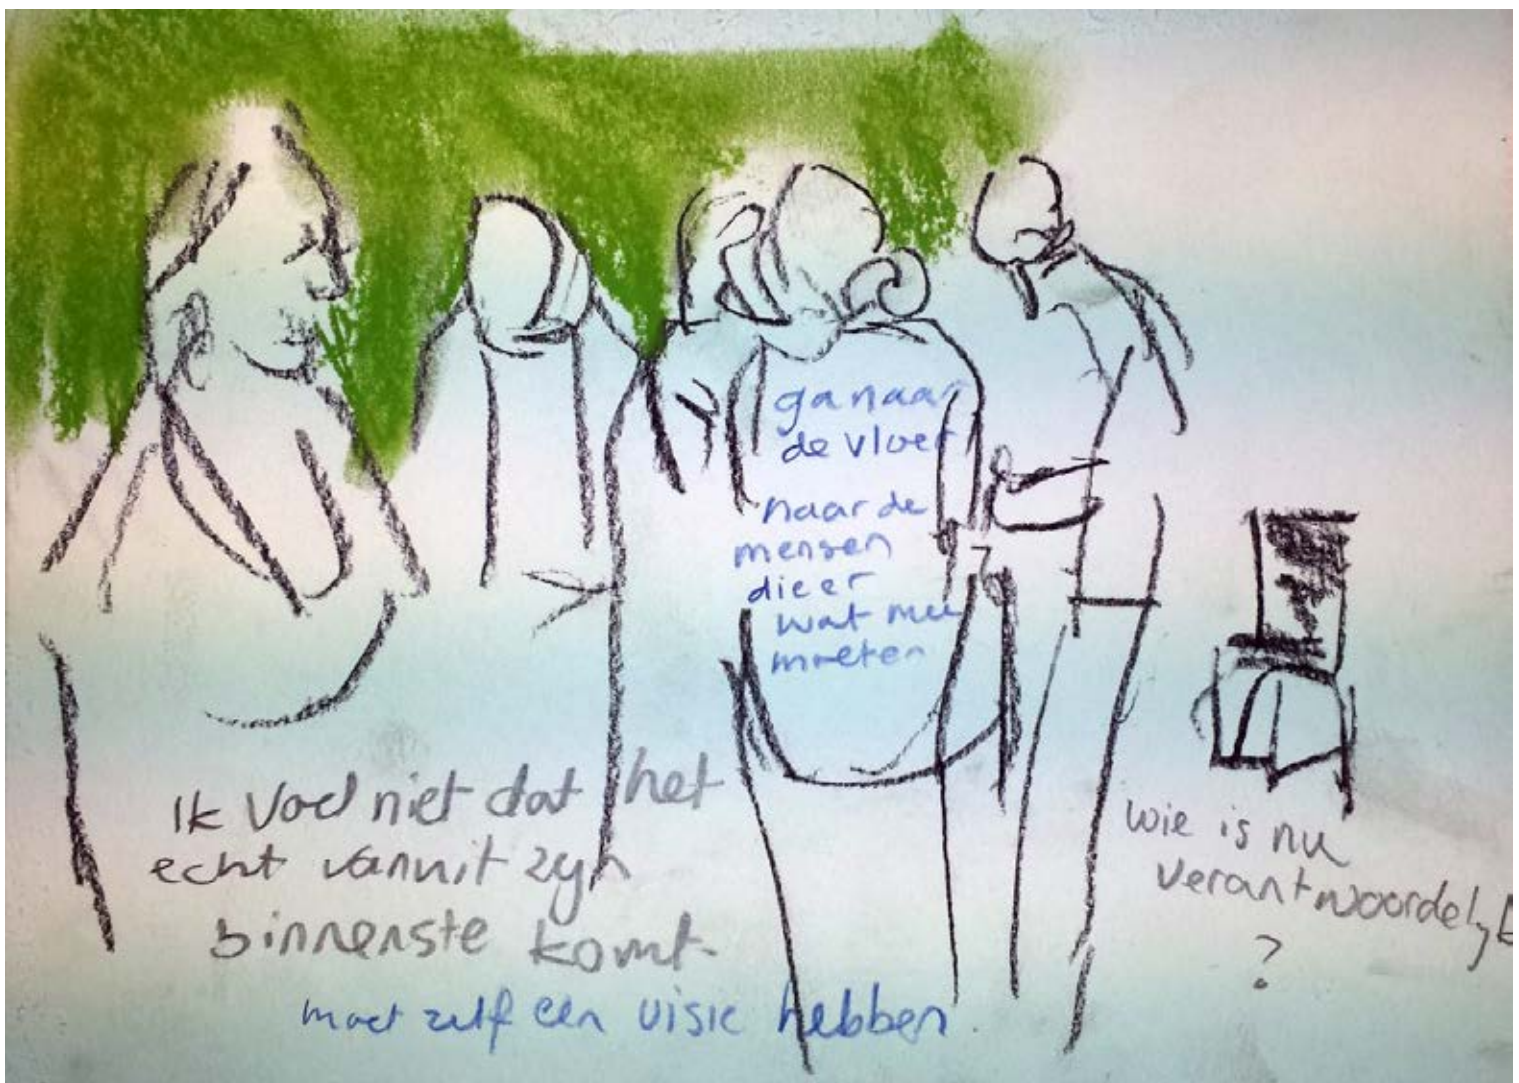 ga naar
de vloer
naar de
mensen
die er
wat mee
moeten
Ik voel niet dat het
echt vanuit zijn
binnenste komt.
moet zelf een visie hebben.
wie is nu
verantwoordelijk
?